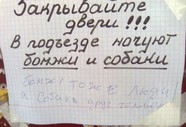 Закрывайте
двери!!!
В подъезде ночуют
бомжи и собаки
бомжи тоже люди
а собака друг человека